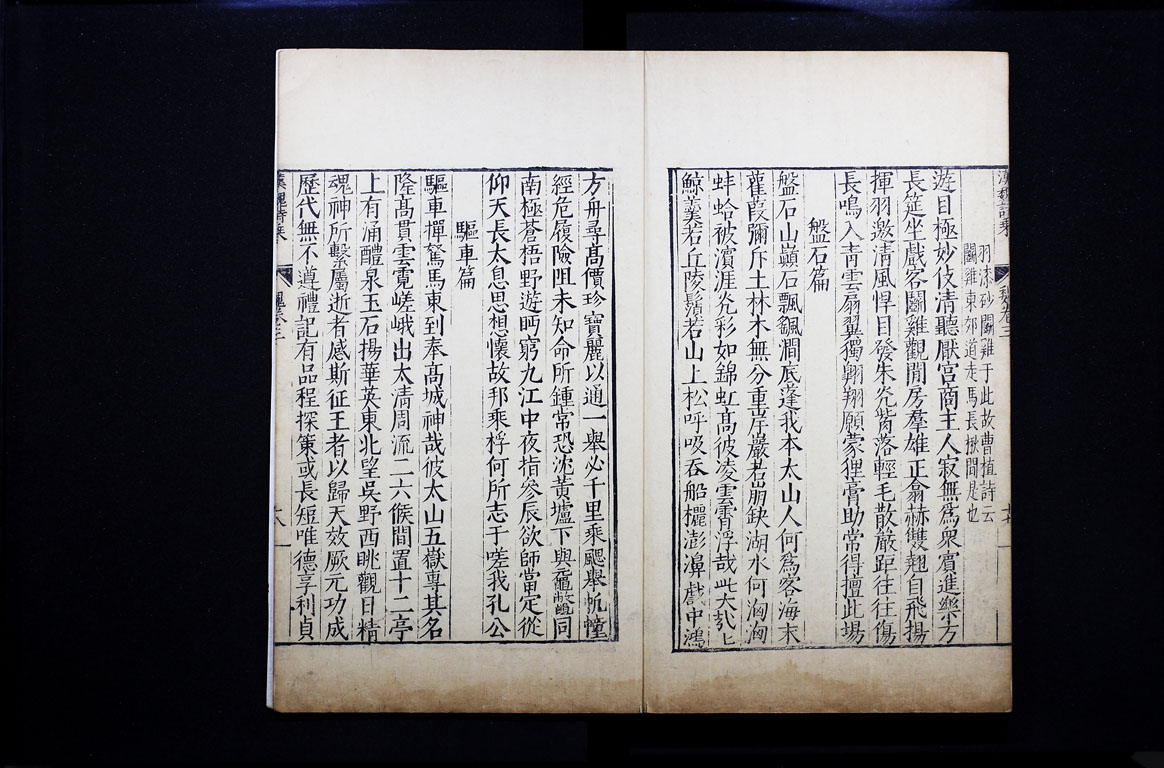 漢魏詩乘
魏卷三
十七
羽漆砂鬭雞于此故曹植詩云
鬭雞東郊道走馬長楸間是也
遊目極妙伎清聽厭宮商主人寂無為衆賓進樂方
長筵坐戲客鬭雞觀閒房羣雄正翕赫雙翹自飛揚
揮羽邀清風悍目發朱光觜落輕毛散嚴距往往傷
長鳴入青雲扇翼獨翱翔願蒙狸膏助常得擅此場
盤石篇
盤石山巔石飄飖澗底蓬我本太山人何為客海末
雚葭彌斥土林木無分重岸巖若崩缺湖水何洶洶
蚌蛤被濱涯光彩如錦虹高彼凌雲霄浮哉此大
鯨羹若丘陵鬚若山上松呼吸吞船欐澎濞戲中鴻
方舟尋高價珍寶麗以通一舉必千里乘颸舉帆幢
經危履險阻未知命所鍾常恐沈黃壚下與黿鼈同
南極蒼梧野遊眄窮九江中夜指參辰欲師當定從
仰天長太息思想懷故邦乘桴何所志于嗟我孔公
驅車篇
驅車撣駑馬東到奉高城神哉彼太山五嶽專其名
隆高貫雲霓嵯峨出太清周流二六候間置十二亭
上有涌醴泉玉石揚華英東北望吳野西眺觀日精
魂神所繫屬逝者感斯征王者以歸天效厥元功成
歷代無不遵禮記有品程探策或長短唯德享利貞
漢魏詩乘
魏卷三
十八